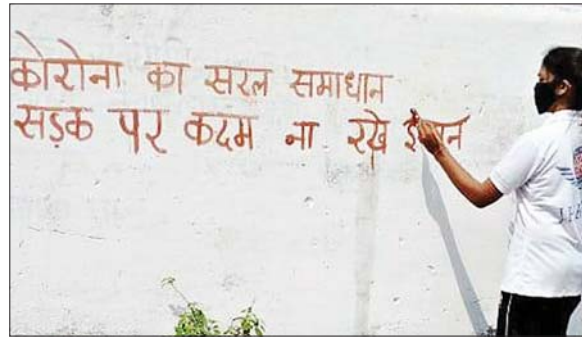 कोरोना का सरल समाधान
सड़क पर कदम ना रखे